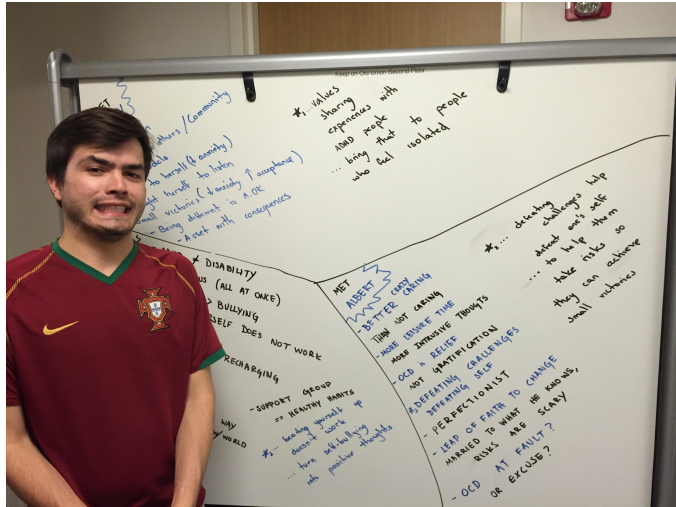 Keep on Old Union Second Floor
MET
others / Community
to herself (↓ anxiety)
herself to listen
small victories (↓ anxiety ↑ acceptance)
- Being different is A.OK
- Asset with consequences
*,...values
sharing
experiences with
people
... bring that to people
who feel isolated
≠ DISABILITY
US (ALL AT ONCE)
BULLYING
SELF DOES NOT WORK
RECHARGING
- SUPPORT GROUP
HEALTHY HABITS
*,... beating yourself up
doesn't work
... turn self-bullying
into positive thoughts
WAY
WORLD
MET
ALBERT
CRAZY
- BETTER CARING
THAN NOT CARING
- MORE LEISURE TIME
MORE INTRUSIVE THOUGTS
- OCD is RELIEF
NOT GRATIFICATION
*,DEFEATING CHALLENGES
DEFEATING SELF
- PERFECTIONIST
- LEAP OF FAITH TO CHANGE
MARRIED TO WHAT HE KNOWS,
RISKS ARE SCARY
- OCD AT FAULT?
OR EXCUSE?
*,... defeating
challenges help
defeat one's self
... to help them
take risks so
they can achieve
small victories
PORTUGAL